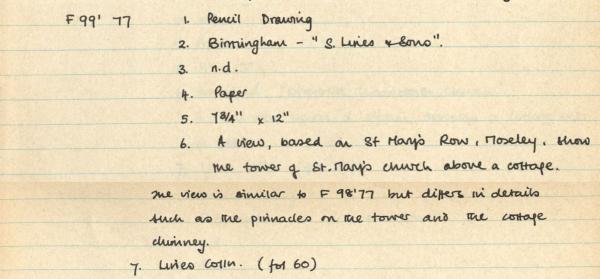 F 99' 77 1. Pencil Drawing
2. Birmingham - "S. Lines & Sons".
3. n.d.
4. Paper
5. 7 3/4" x 12"
6. A view, based on St Mary's Row, Moseley, show
the tower of St. Mary's church above a cottage.
The view is similar to F 98'77 but differs in details
such as the pinnacles on the tower and the cottage
chimney.
7. Lines Colln. (fol 60)